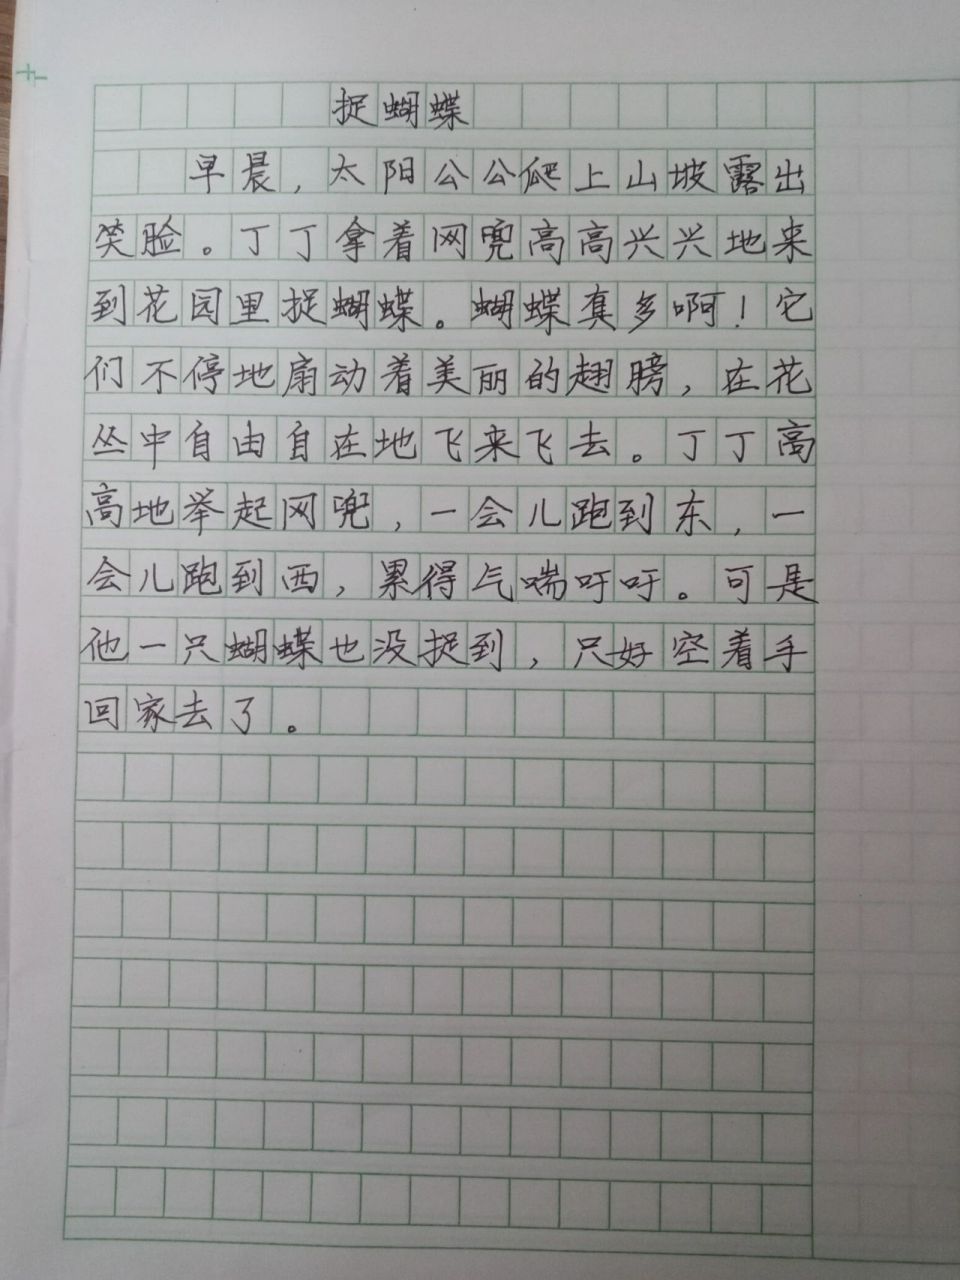 捉蝴蝶
早晨，太阳公公爬上山坡露出
笑脸。丁丁拿着网兜高高兴兴地来
到花园里捉蝴蝶。蝴蝶真多啊！它
们不停地扇动着美丽的翅膀，在花
丛中自由自在地飞来飞去。丁丁高
高地举起网兜，一会儿跑到东，一
会儿跑到西，累得气喘吁吁。可是
他一只蝴蝶也没捉到，只好空着手
回家去了。